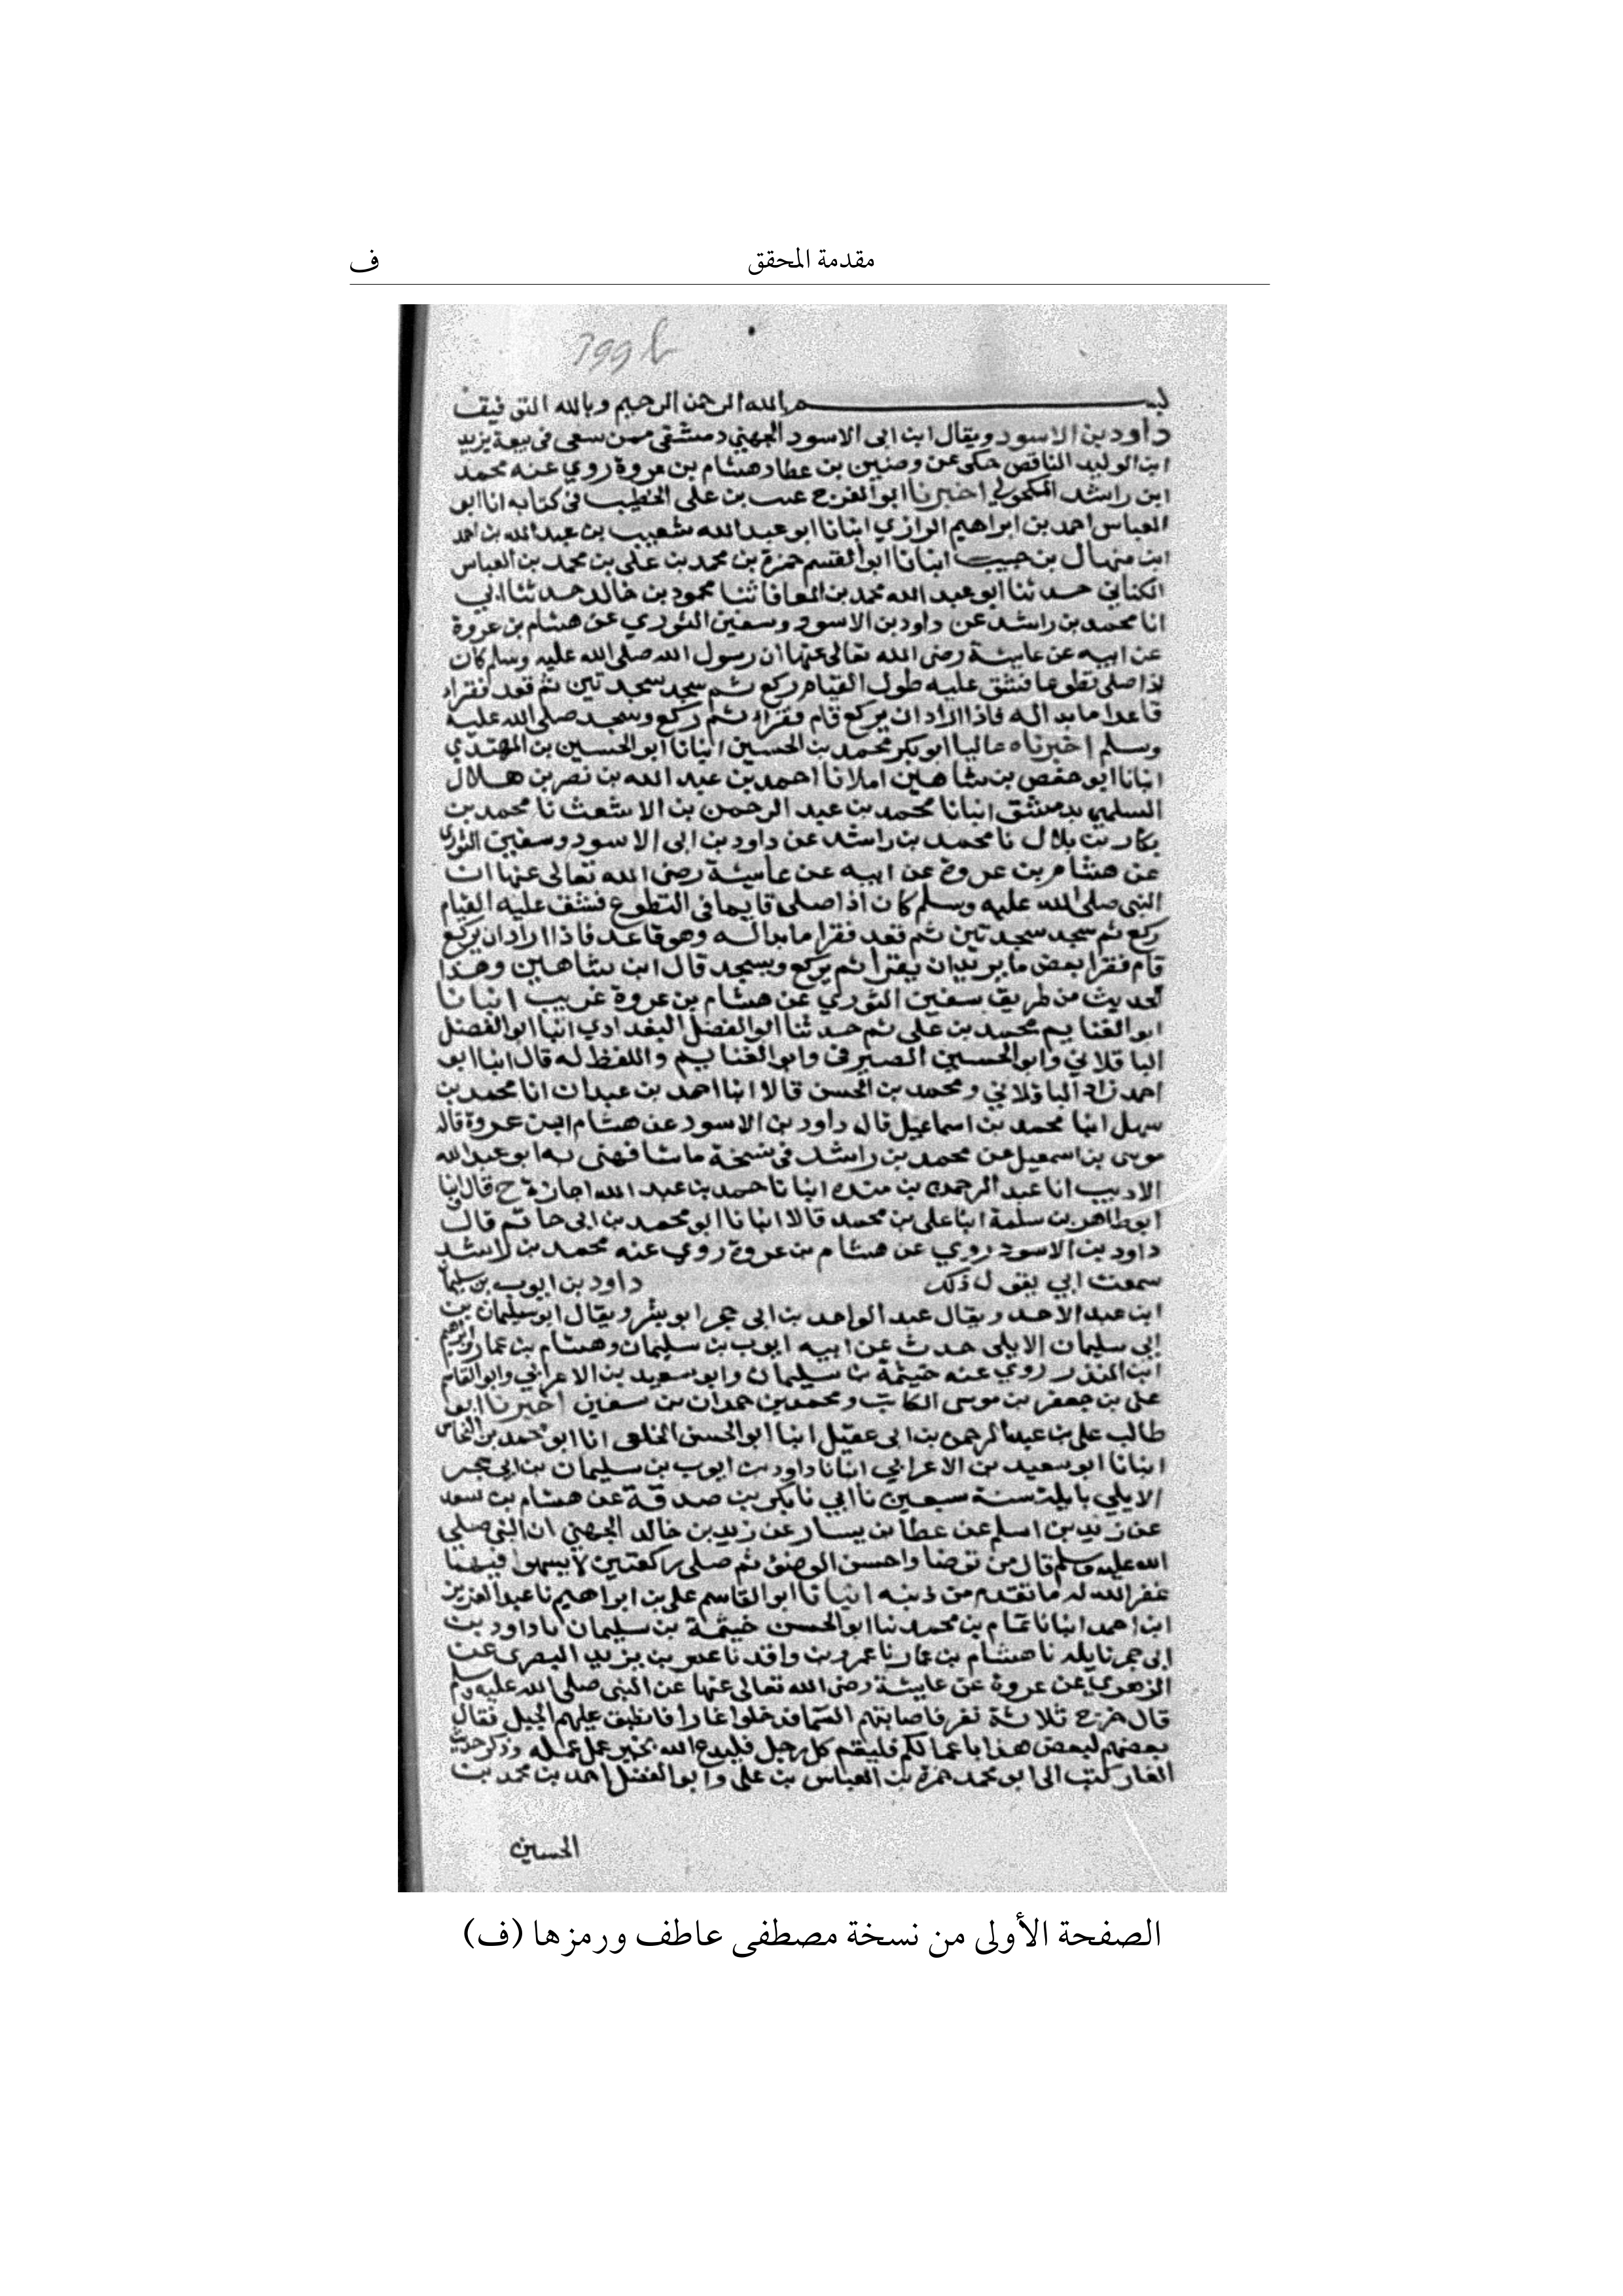 مقدمة المحقق
ف
بسم الله الرحمن الرحيم وبالله التوفيق
داود بن الاسود ويقال ابن ابى الاسود الجهني دمشقى ممن سعى فى بيعة يزيد
ابن الوليد الناقص حكى عن وضين بن عطا وهشام بن عروة روي عنه محمد
ابن راشد المكحولي اخبرنا ابو الفرج غيث بن على الخطيب فى كتابه انا ابو
العباس احمد بن ابراهيم الرازي انبانا ابو عبد الله شعيب بن عبد الله بن احمد
ابن منهال بن حبيب انبانا ابو القسم حمزة بن محمد بن على بن محمد بن العباس
الكنانى حدثنا ابو عبد الله محمد بن المعافا ثنا محمود بن خالد حدثنا ابي
انا محمد بن راشد عن داود بن الاسود وسفين الثوري عن هشام بن عروة
عن ابيه عن عايشة رضى الله تعالى عنها ان رسول الله صلى الله عليه وسلم كان
اذا صلى تطوعا فشق عليه طول القيام ركع ثم سجد سجدتين ثم قعد فقرا
قاعدا ما بدا له فاذا اراد ان يركع قام فقراء ثم ركع وسجد صلى الله عليه
وسلم اخبرناه عاليا ابو بكر محمد بن الحسين انبانا ابو الحسين بن المهتدي
انبانا ابو حفص بن شاهين املا نا احمد بن عبد الله بن نصر بن هلال
السلمي بدمشق انبانا محمد بن عبد الرحمن بن الاشعث نا محمد بن
بكار بن بلال نا محمد بن راشد عن داود بن ابى الاسود وسفين الثورى
عن هشام بن عروة عن ابيه عن عايشة رضى الله تعالى عنها ان
النبى صلى الله عليه وسلم كان اذا صلى قايما فى التطوع فشق عليه القيام
ركع ثم سجد سجدتين ثم قعد فقرا ما بدا له وهو قاعد فاذا اراد ان يركع
قام فقرا بعض ما يريد ان يقرا ثم يركع ويسجد قال ابن شاهين وهذا
الحديث من طريق سفين الثوري عن هشام بن عروة غريب انبانا
ابو الغنايم محمد بن على ثم حدثنا ابو الفضل البغدادي انبا ابو الفضل
الباقلاني وابو الحسين الصيرفى وابو الغنايم واللفظ له قال انبا ابو
احمد زاد الباقلاني ومحمد بن الحسن قالا انبا احمد بن عبدان انا محمد بن
سهل انبا محمد بن اسماعيل قال داود بن الاسود عن هشام ابن عروة قاله
موسى بن اسمعيل عن محمد بن راشد فى نسخة ما شافهنى به ابو عبد الله
الاديب انا عبد الرحمن بن منده انبانا حمد بن عبد الله اجازة ح قال انبا
ابو طاهر بن سلمة انبا على بن محمد قالا انبانا ابو محمد بن ابى حاتم قال
داود بن الاسود روي عن هشام بن عروة روي عنه محمد بن راشد
سمعت ابي يقول ذلك داود بن ايوب بن سليمان
ابن عبد الاحد ويقال عبد الواحد بن ابى حجر ابو بشر ويقال ابو سليمان بن
ابى سليمان الايلى حدث عن ابيه ايوب بن سليمان وهشام بن عمار وابرهيم
ابن المنذر روي عنه خيثمة بن سليمان وابو سعيد بن الاعرابي وابو القاسم
على بن جعفر بن موسى الكاتب ومحمد بن حمدان بن سفين اخبرنا ابو
طالب على بن عبد الرحمن بن ابى عقيل انبا ابو الحسن الخلعى انا ابو محمد بن النحاس
انبانا ابو سعيد بن الاعرابي انبانا داود بن ايوب بن سليمان بن ابى حجر
الايلي بايلة سنة سبعين نا ابي نا بكر بن صدقة عن هشام بن سعد
عن زيد بن اسلم عن عطا بن يسار عن زيد بن خالد الجهني ان النبى صلى
الله عليه وسلم قال من توضا واحسن الوضوء ثم صلى ركعتين لا يسهوا فيهما
غفر الله له ما تقدم من ذنبه انبانا ابو القاسم على بن ابراهيم نا عبد العزيز
ابن احمد انبانا تمام بن محمد نبا ابو الحسن خيثمة بن سليمان نا داود بن
ابى حجر بايله نا هشام بن عمار نا عمرو بن واقد نا عمر بن يزيد البصرى عن
الزهري عن عروة عن عايشة رضى الله تعالى عنها عن النبى صلى الله عليه وسلم
قال خرج ثلاثة نفر فاصابتهم السما فدخلوا غارا فانطبق عليهم الجبل فقال
بعضهم لبعض هذا باعمالكم فليقم كل رجل فليدع الله بخير عمل عمله وذكر حديث
الغار كتب الى ابو محمد حمزة بن العباس بن على وابو الفضل احمد بن محمد بن
الحسين
الصفحة الأولى من نسخة مصطفى عاطف ورمزها (ف)